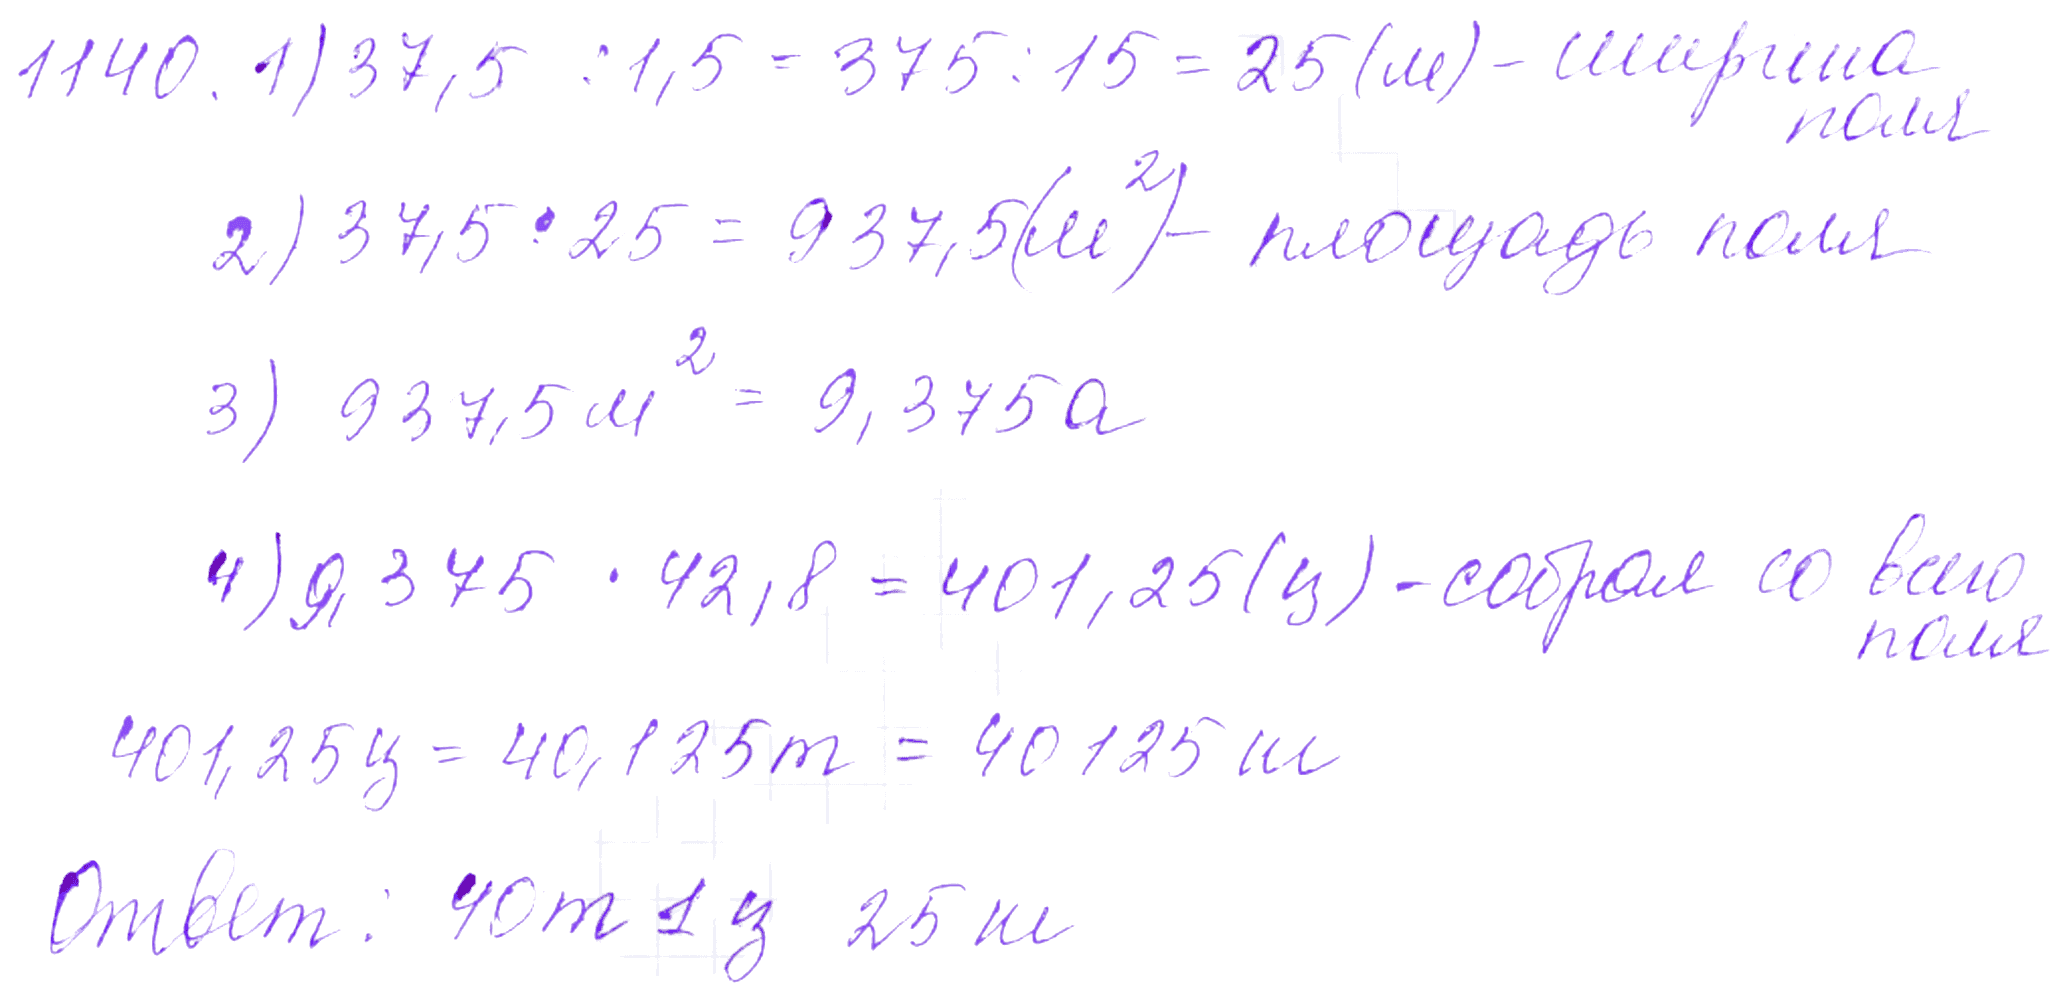 1140. 1) 37,5 : 1,5 = 375 : 15 = 25 (м) - ширина
поля
2) 37,5 • 25 = 937,5 (м²) - площадь поля
3) 937,5 м² = 9,375 а
4) 9,375 · 42,8 = 401,25 (ц) - собрал со всего
поля
401,25 ц = 40,125 т = 40125 кг
Ответ: 40 т 1 ц 25 кг